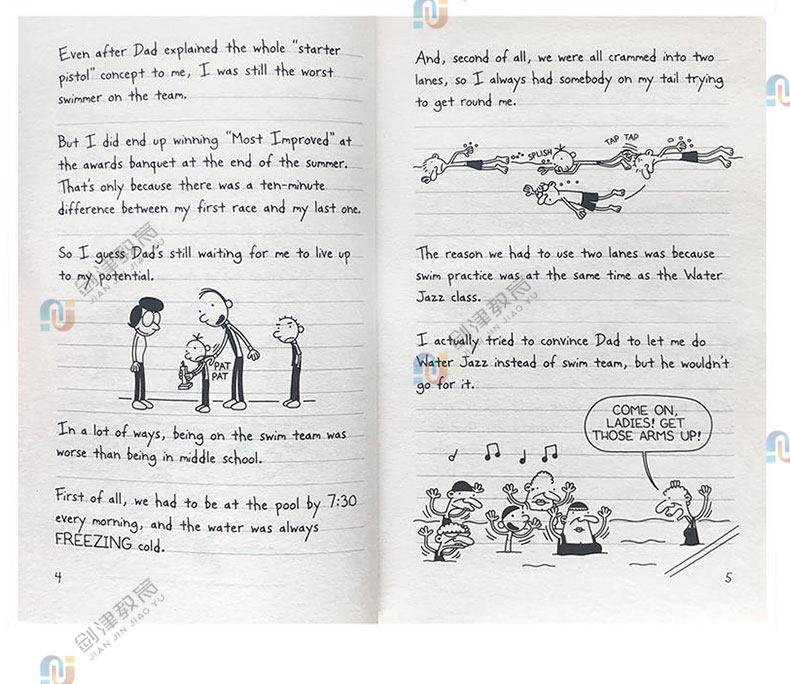 Even after Dad explained the whole "starter
pistol" concept to me, I was still the worst
swimmer on the team.
But I did end up winning "Most Improved" at
the awards banquet at the end of the summer.
That's only because there was a ten-minute
difference between my first race and my last one.
So I guess Dad's still waiting for me to live up
to my potential.
PAT
PAT
In a lot of ways, being on the swim team was
worse than being in middle school.
First of all, we had to be at the pool by 7:30
every morning, and the water was always
FREEZING cold.
4
And, second of all, we were all crammed into two
lanes, so I always had somebody on my tail trying
to get round me.
SPLISH
TAP TAP
The reason we had to use two lanes was because
swim practice was at the same time as the Water
Jazz class.
I actually tried to convince Dad to let me do
Water Jazz instead of swim team, but he wouldn't
go for it.
COME ON,
LADIES! GET
THOSE ARMS UP!
5
剑津教育
JIAN JIN JIAO YU
剑津教育
JIAN JIN JIAO YU
剑津教育
JIAN JIN JIAO YU